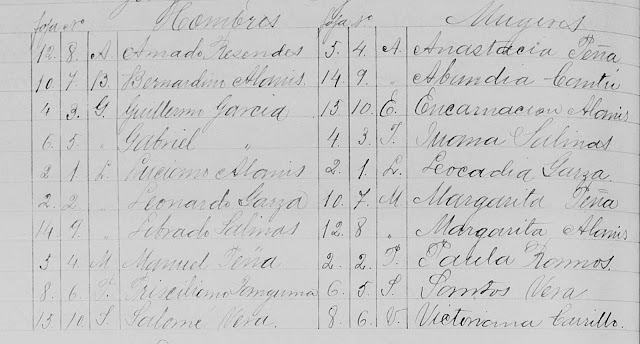 foja No Hombres foja No Mugeres
12. 8. A Amado Resendes 3. 4. A. Anastacia Peña
10. 7. B. Bernardino Alanis 14 9. " Abundia Cantú
4 3. G. Guillermo Garcia 15. 10. E. Encarnacion Alanis
6. 5. " Gabriel " 4 3. J. Juana Salinas
2 1 L. Luciano Alanis 2. 1. L. Leocadia Garza.
2. 2. " Leonardo Garza 10. 7. M Margarita Peña
14. 9. " Librado Salinas 12. 8 " Margarita Alanis
3 4 M. Manuel Peña 2. 2. P. Paula Ramos.
8. 6. P. Prisciliano 6. 5. S. Santos Vera
13. 10. S. Salomé Vera. 8. 6. V. Victoriana Carrillo.